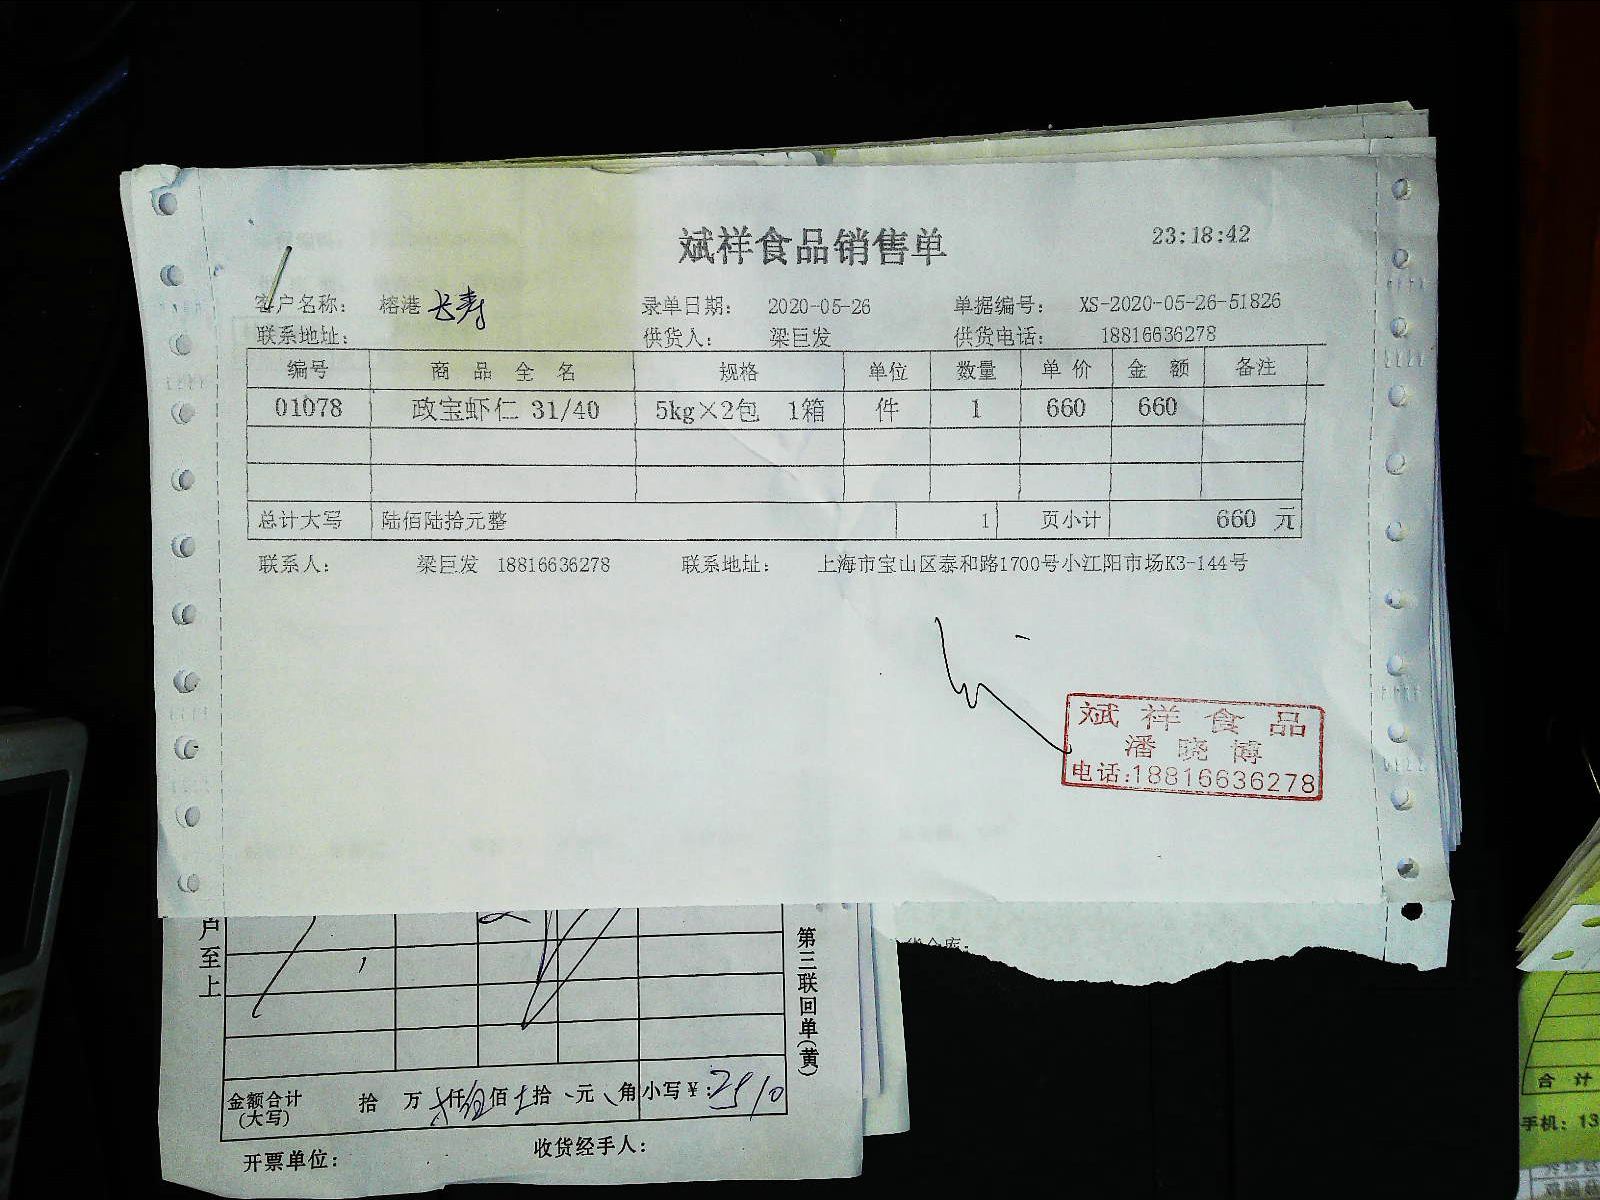 斌祥食品销售单
23:18:42
客户名称： 榕港 长寿 录单日期： 2020-05-26 单据编号： XS-2020-05-26-51826
联系地址： 供货人： 梁巨发 供货电话： 18816636278
编号 商品全名 规格 单位 数量 单价 金额 备注
01078 政宝虾仁 31/40 5kg×2包 1箱 件 1 660 660
总计大写 陆佰陆拾元整 1 页小计 660 元
联系人： 梁巨发 18816636278 联系地址： 上海市宝山区泰和路1700号小江阳市场K3-144号
斌祥食品
潘晓博
电话:18816636278
户至上
第三联回单(黄)
金额合计(大写) 拾 万 仟 佰 拾 元 角 小写¥:
开票单位： 收货经手人：
合计
手机：13